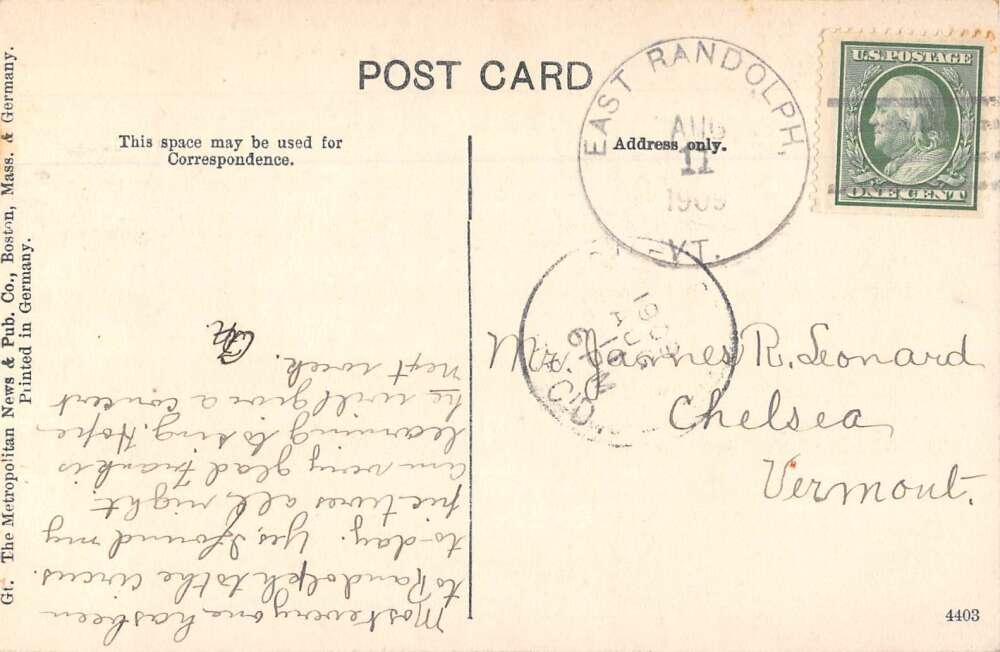 POST CARD
This space may be used for
Correspondence.
Address only.
EAST RANDOLPH,
AUG
11
1909
VT.
U.S. POSTAGE
ONE CENT
1909
AUG
Mr. James R. Leonard
Chelsea
Vermont.
Most every one has been
to Randolph to the circus.
to-day. Yes I found my
pictures all right.
am very glad Frank is
learning to sing. Hope
he will give a concert
next week.
Gt. The Metropolitan News & Pub. Co., Boston, Mass. & Germany.
Printed in Germany.
4403